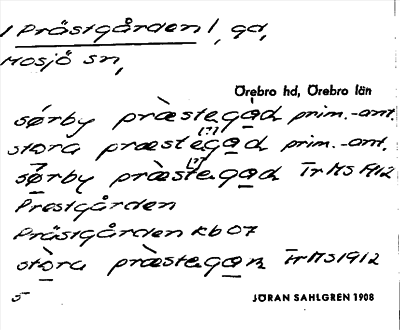 /Prästgården/, gd,
Mosjö sn,
Örebro hd, Örebro län
sørby præ̀stegạd prim.-ant.
stora præstegạd prim.-ant.
sø̀rby præ̀stegạd TrMs 1912
Prestgården
Prästgården Kb 07
stòra præ̀stegạn TrMs 1912
5
JÖRAN SAHLGREN 1908